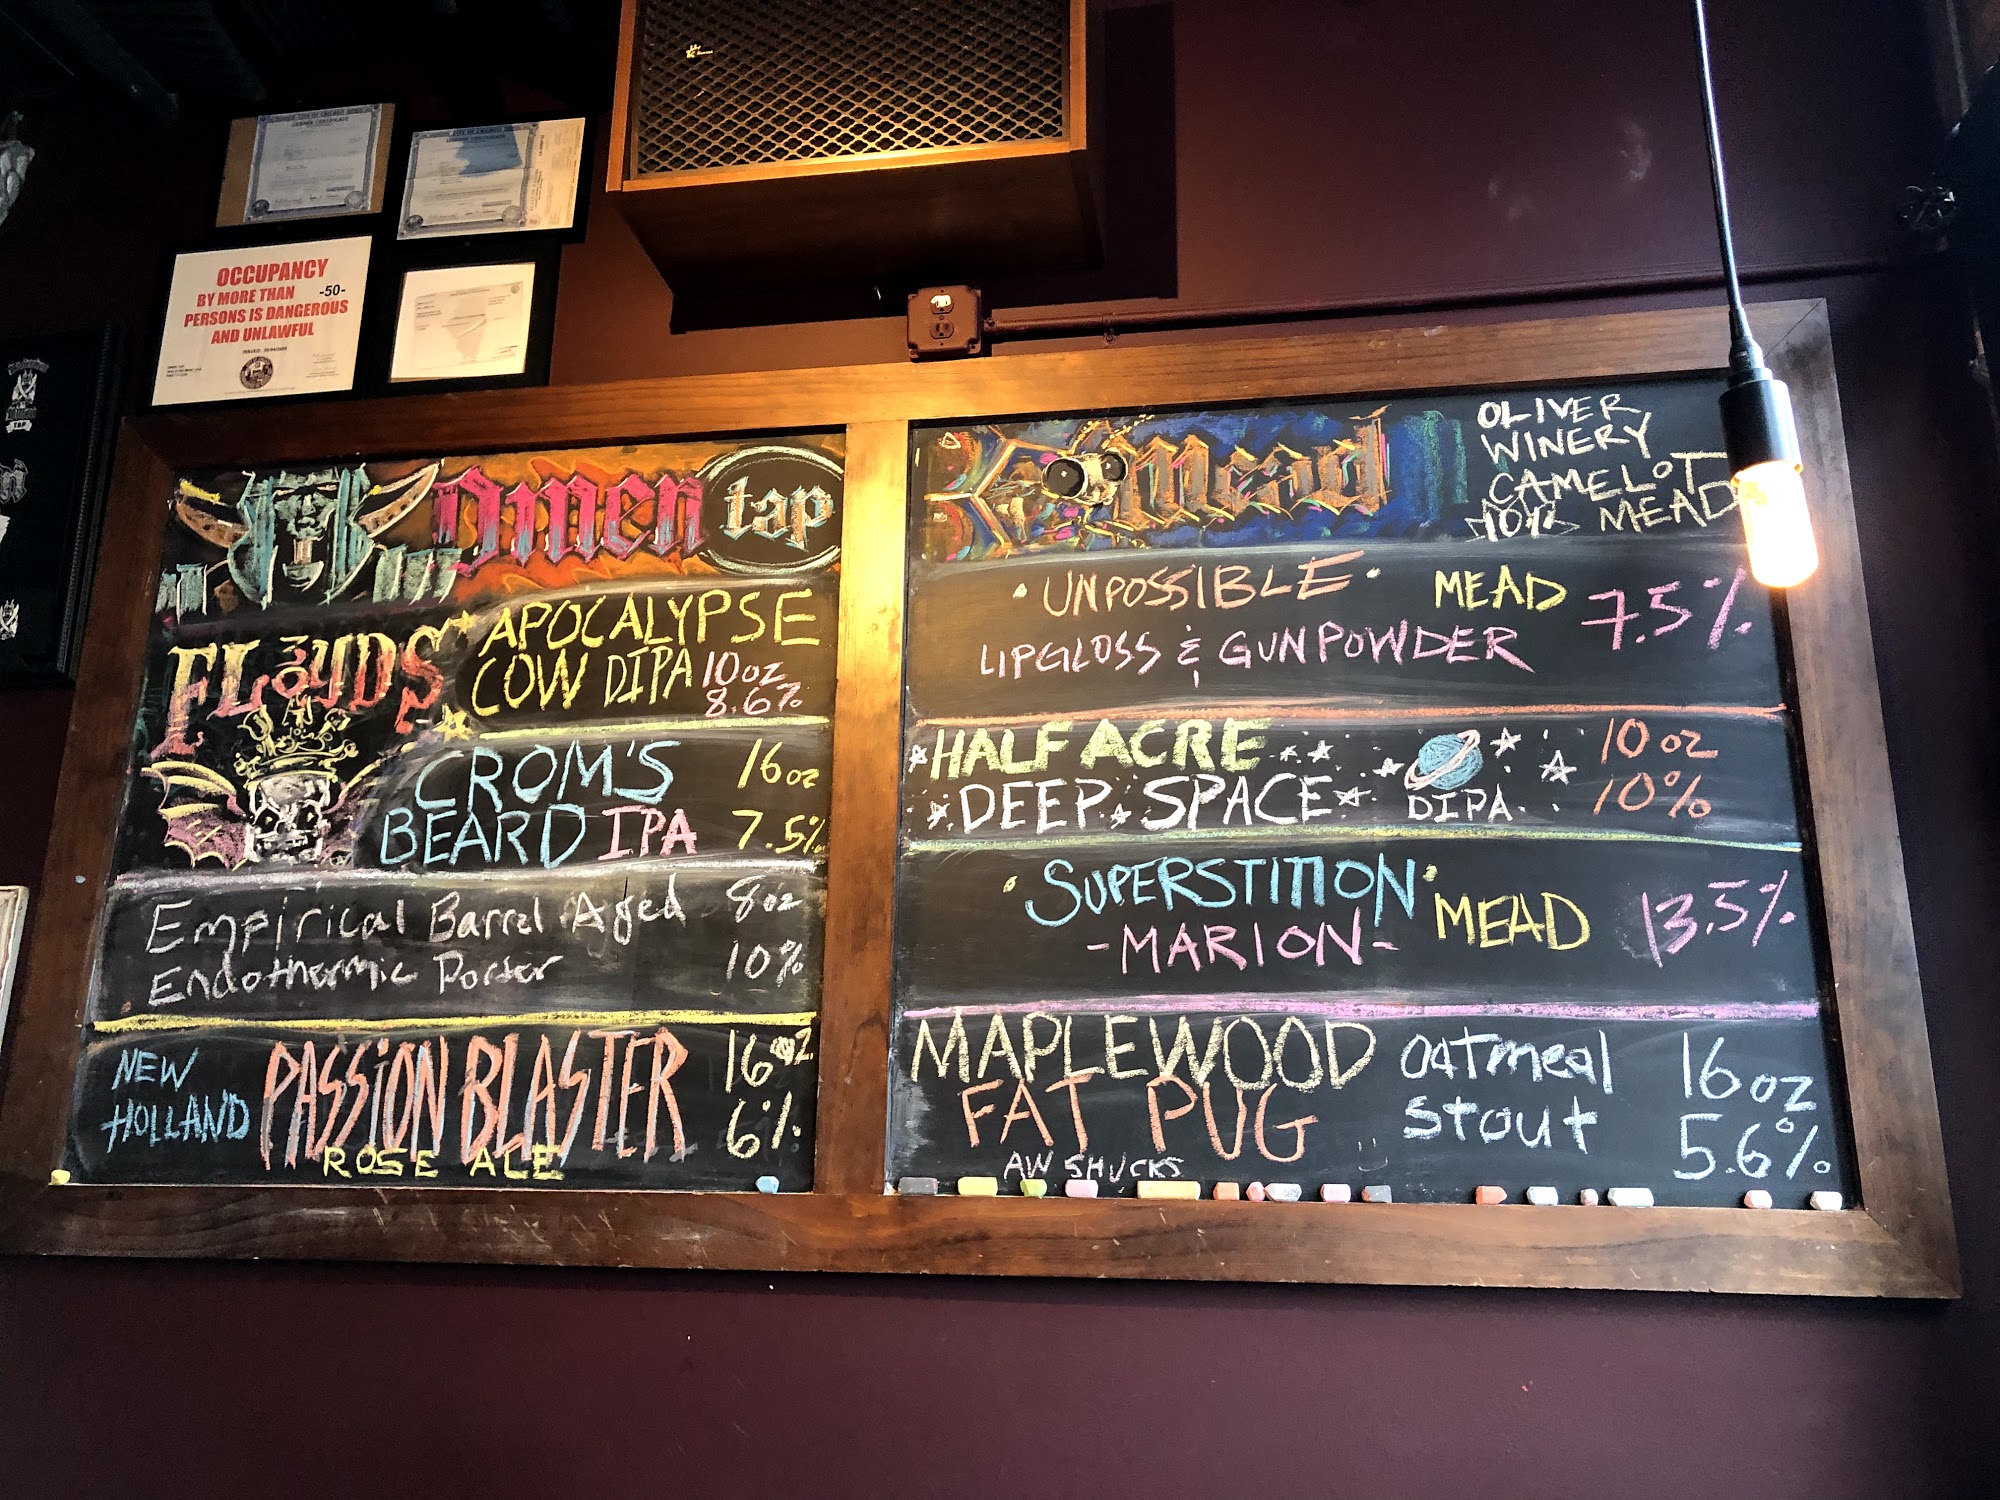 CITY OF CHICAGO
LICENSE CERTIFICATE
OCCUPANCY
BY MORE THAN -50-
PERSONS IS DANGEROUS
AND UNLAWFUL
TAP
Omen tap
3 FLOYDS
APOCALYPSE
COW DIPA 10oz
8.6%
CROM'S 16oz
BEARD IPA 7.5%
Empirical Barrel Aged 8oz
Endothermic Porter 10%
NEW
HOLLAND
PASSION BLASTER
ROSE ALE
16oz
6%
Mead
OLIVER
WINERY
CAMELOT
10% MEAD
UNPOSSIBLE MEAD 7.5%
LIPGLOSS & GUNPOWDER
HALF ACRE 10oz
DEEP SPACE DIPA 10%
SUPERSTITION MEAD 13.5%
-MARION-
MAPLEWOOD Oatmeal 16oz
FAT PUG Stout 5.6%
AW SHUCKS